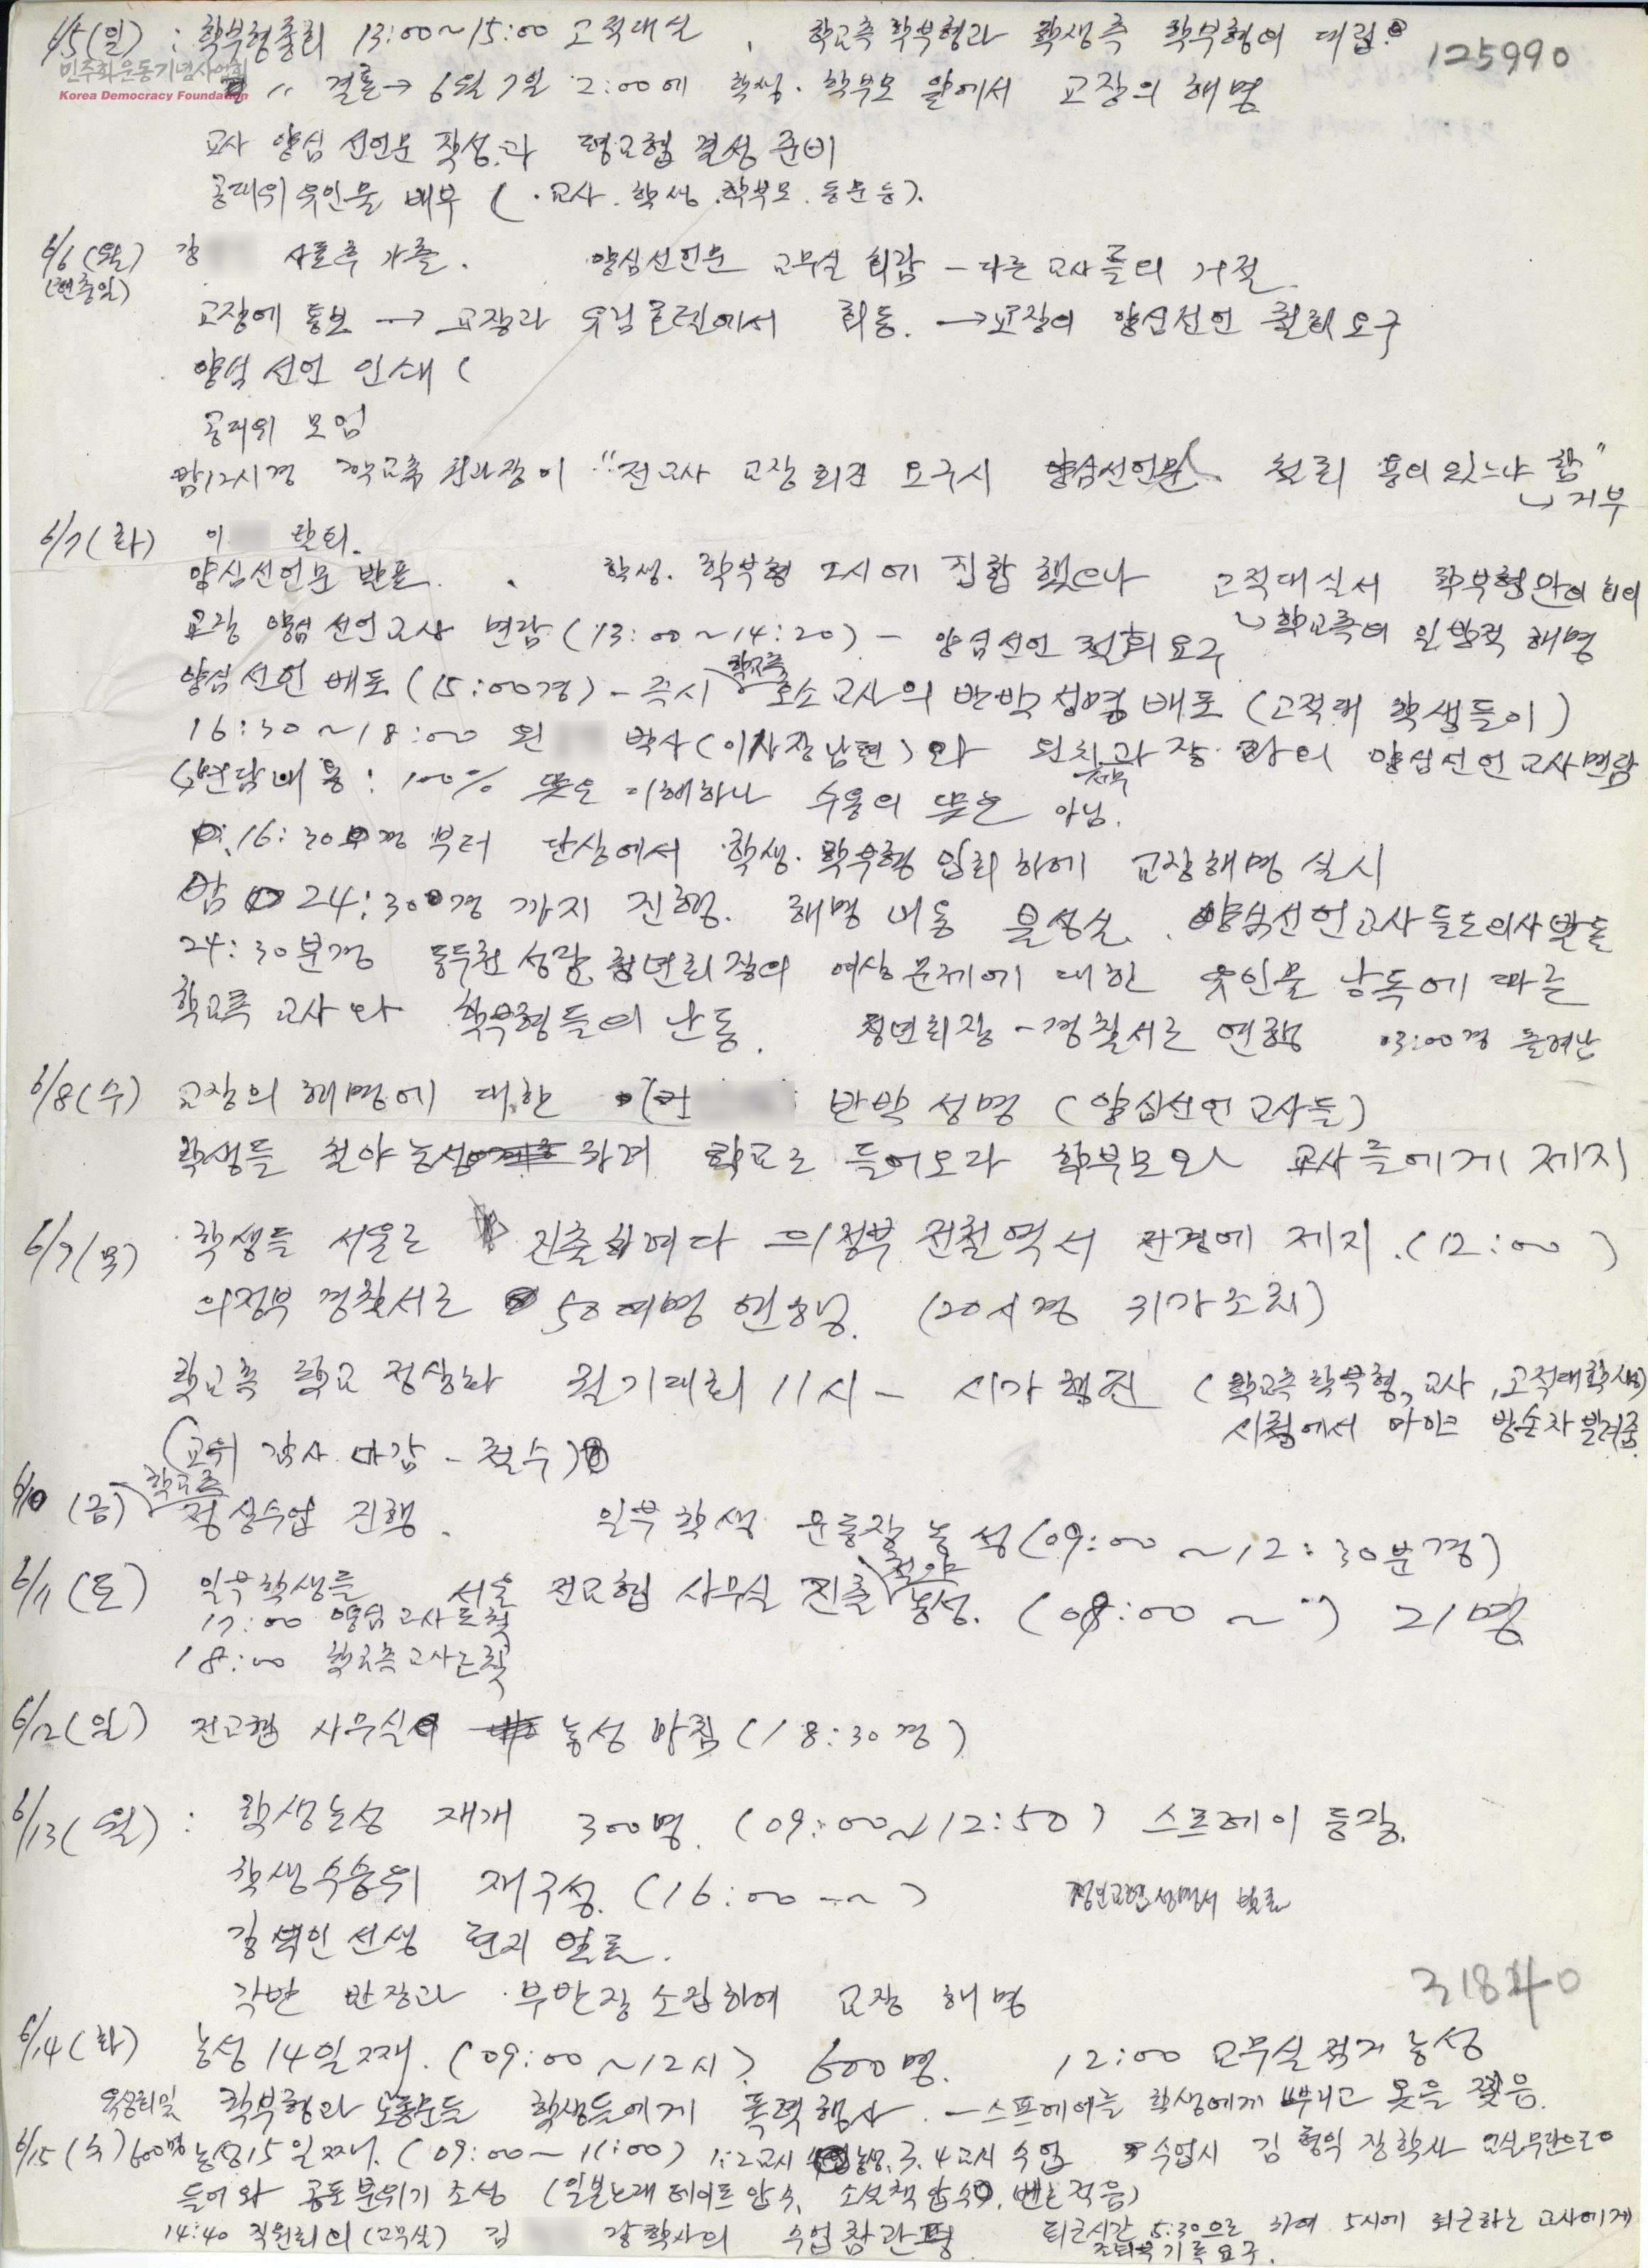 6/5(일) : 학부형총회 13:00~15:00 고적대실 , 학교측 학부형과 학생측 학부형의 대립. 125990
민주화운동기념사업회
Korea Democracy Foundation
〃 결론→ 6월 7일 2:00에 학생 · 학부모 앞에서 교장의 해명
교사 양심 선언문 작성과 평교협 결성 준비
공대위 유인물 배부 ( · 교사 . 학생 . 학부모 . 동문 등).
6/6 (월) 강 사표후 가출. 양심선언문 교무실 회람 - 다른 교사들의 거절
(현충일)
교장에 통보 → 교장과 유림호텔에서 회동. → 교장이 양심선언 철회요구
양심 선언 인쇄 (
공대위 모임
밤12시경 학교측 과장이 "전교사 교장 회견 요구시 양심선언문 철회 용의 있느냐 함"
↳ 거부
6/7(화) 이 탈퇴.
양심선언문 발표. 학생. 학부형 2시에 집합 했으나 고적대실서 학부형만의 회의
↳ 학교측의 일방적 해명
교장 양심 선언교사 면담 (13:00~14:20) - 양심선언 철회요구
양심 선언 배포 (15:00경) - 즉시 학교측 호소교사의 반박성명 배포 (고적대 학생들이)
16:30~18:00 원 박사(이사장남편)와 원 과장 과의 양심선언교사면담
↳면담내용: 100% 뜻은 이해하나 수용의 뜻은 아님.
16:30경 부터 단상에서 학생 · 학부형 입회하에 교장해명 실시
밤 24:30경 까지 진행. 해명 내용 불성실. 양심선언교사들도 의사발언
24:30분경 동두천 성당 청년회장의 여상 문제에 대한 유인물 낭독에 따른
학교측 교사와 학부형들의 난동. 청년회장 - 경찰서로 연행 03:00경 풀려남
6/8(수) 교장의 해명에 대한 반박 성명 (양심선언교사들)
학생들 철야농성 하려 학교로 들어오다 학부모와 교사들에게 제지
6/7(목) 학생들 서울로 진출하려다 의정부 전철역서 전경에 제지. (12:00 )
의정부 경찰서로 50여명 연행. (20시경 귀가조치)
학교측 학교 정상화 궐기대회 11시 - 시가행진 (학교측 학부형, 교사, 고적대학생)
시청에서 마이크 방송차 빌려줌.
(교위 감사 마감 - 철수)
6/10 (금) 학교측 정상수업 진행. 일부 학생 운동장 농성 (09:00 ~12:30분경)
6/11 (토) 일부학생들 서울 전교협 사무실 진출 철야 농성. (08:00 ~ ) 21명
17:00 양심교사 도착
18:00 학교측 교사도착
6/12(일) 전교협 사무실 농성 마침 (18:30경)
6/13(월) : 학생농성 재개 300명. (09:00~12:50) 스프레이 등장.
학생수습위 재구성. (16:00 -~ ) 성명서 발표
김석인 선생 편지 발표.
각반 반장과 부반장 소집하에 교장 해명
31840
6/14(화) 농성 14일째. (09:00~12시) 600명. 12:00 교무실 점거 농성
육성회 및 학부형과 동문들 학생들에게 폭력행사. - 스프레이를 학생에게 뿌리고 옷을 찢음.
6/15 (수) 600명 농성15일째. (09:00~11:00) 1·2교시 농성, 3, 4교시 수업 수업시 김 장학사 교실무단으로
들어와 공포 분위기 조성 (일본노래 테이프 압수, 소설책 압수, 적음)
14:40 직원회의 (교무실) 김 장학사의 수업 참관평 퇴근시간 5:30으로 하여 5시에 퇴근하는 교사에게
조퇴 기록 요구.